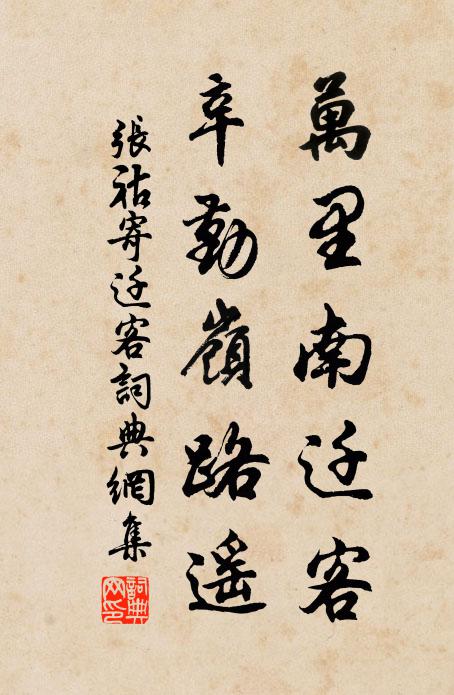 萬里南迁客
辛勤嶺路遥
張祜寄迁客詞典網集
詞典网印